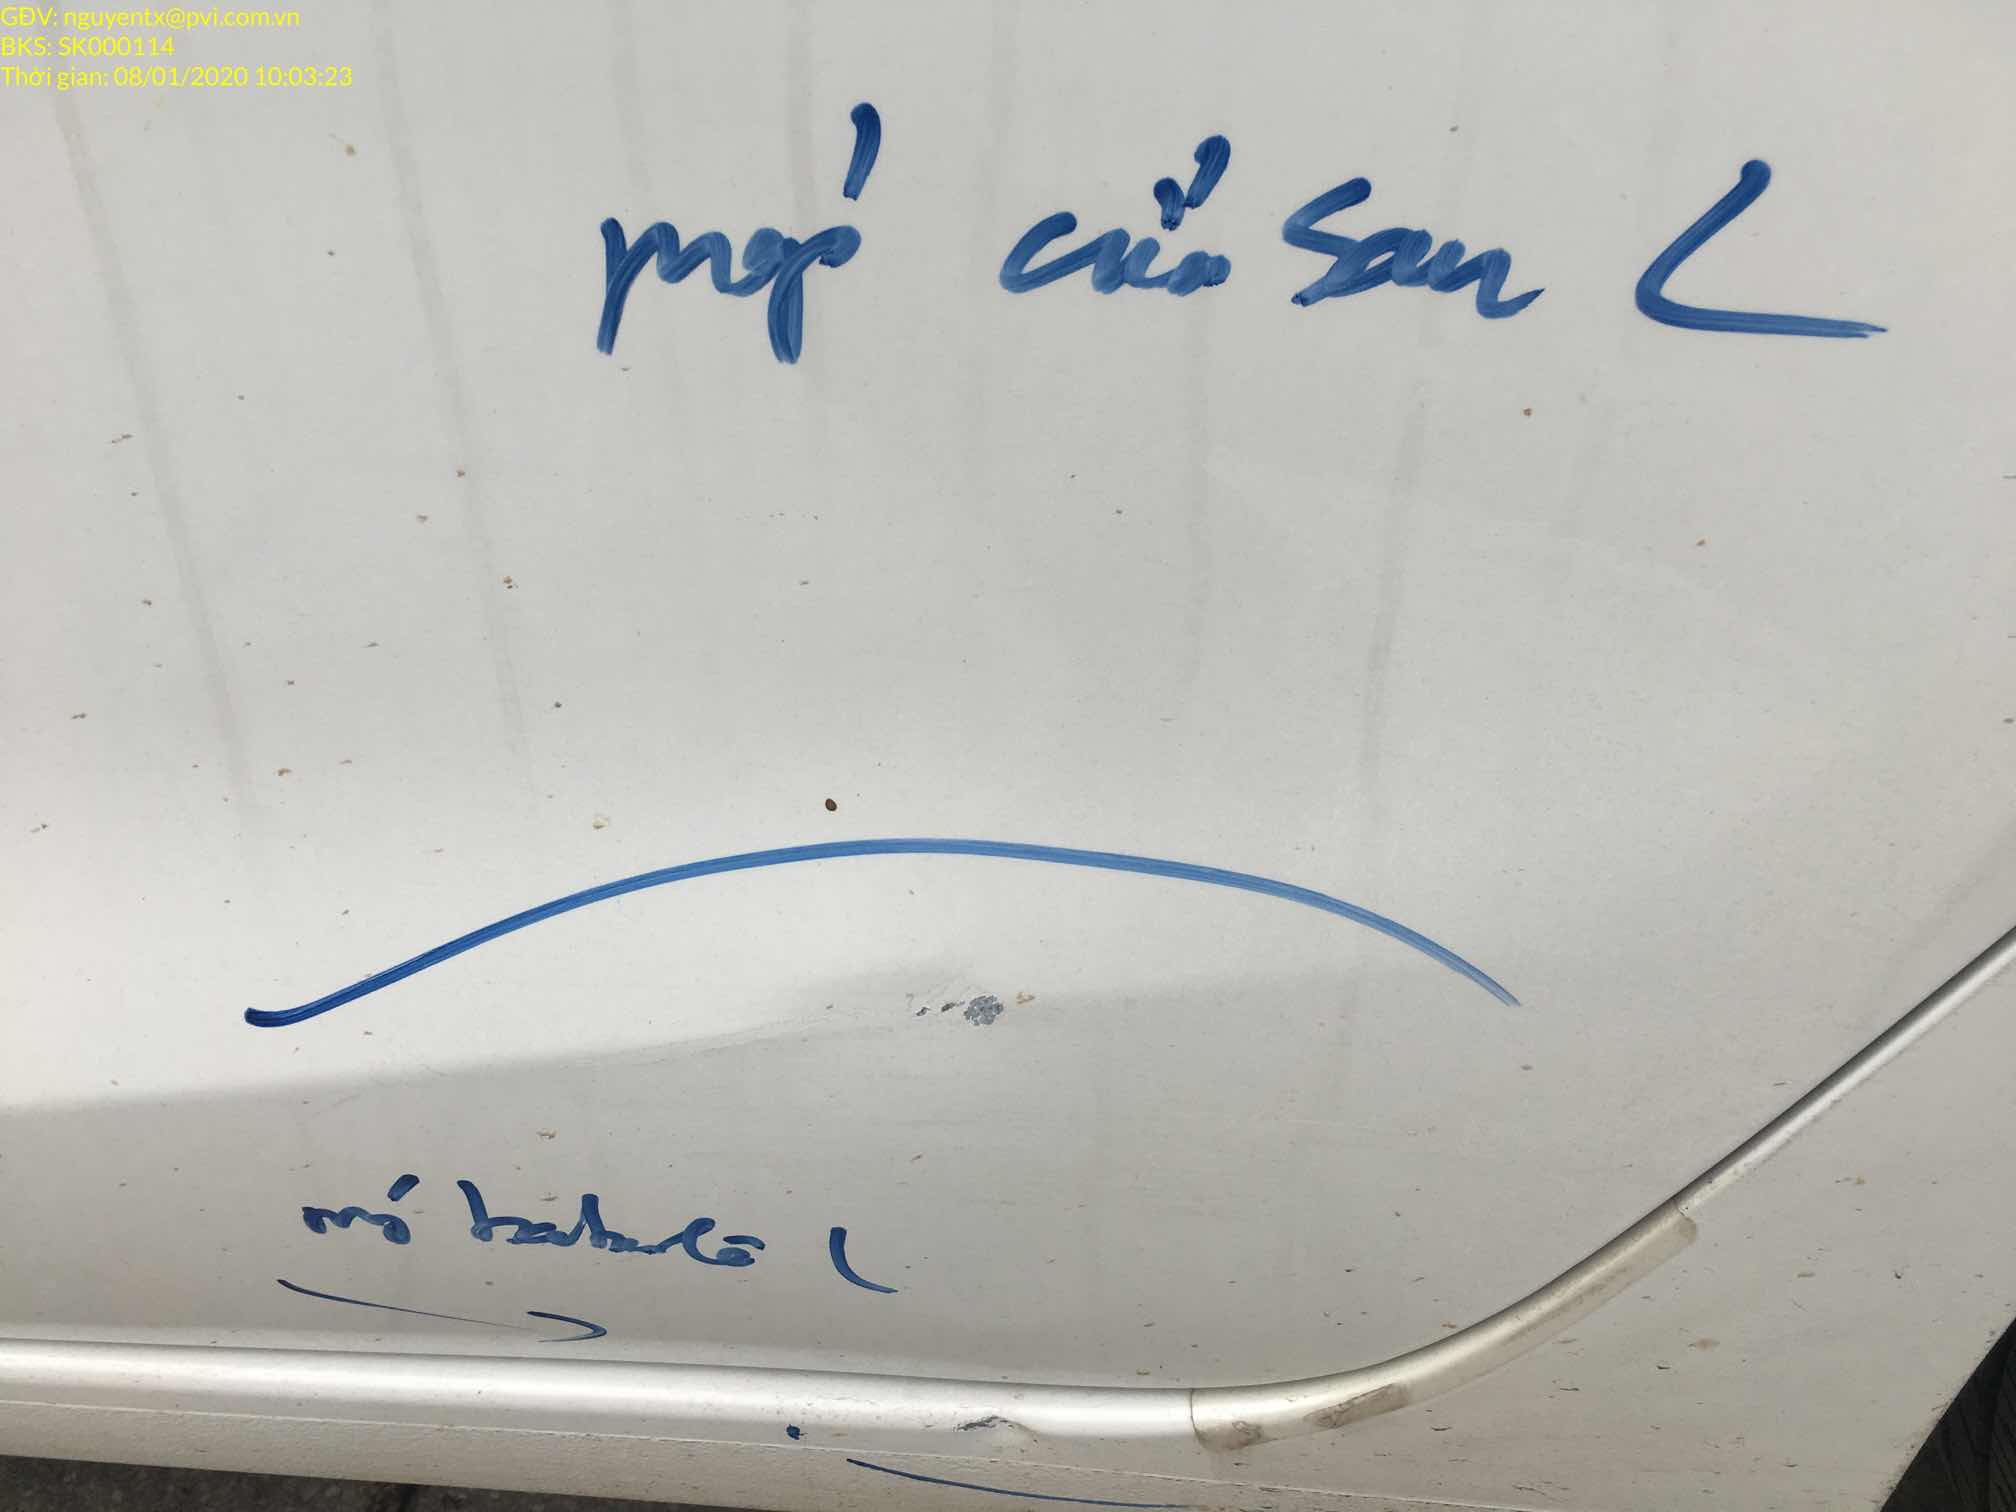 GĐV: nguyentx@pvi.com.vn
BKS: SK000114
Thời gian: 08/01/2020 10:03:23
móp cửa sau L
mó babulê L